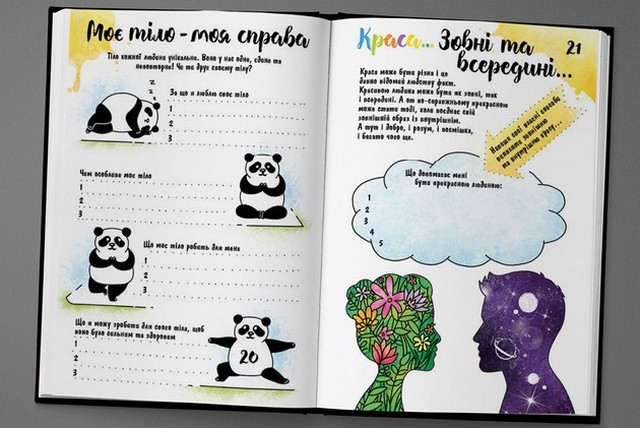 Моє тіло - моя справа
Тіло кожної людини унікальне. Воно у нас одне, єдине та
неповторне! Чи ти друг своєму тілу?
z
z
z
За що я люблю своє тіло
1
2
3
Чим особливе моє тіло
1
2
3
Що моє тіло робить для мене
1
2
3
Що я можу зробити для свого тіла, щоб
воно було сильним та здоровим
1
2
3
20
Краса... Зовні та
всередині...
21
Краса може бути різна і це
давно відомий людству факт.
Красивою людина може бути як зовні, так
і всередині. А от по-справжньому прекрасною
може стати тоді, коли поєднає свій
зовнішній образ із внутрішнім.
А тут і добро, і розум, і посмішка,
і багато чого ще.
Напиши свої власні способи
виявляти зовнішню
та внутрішню красу...
Що допомагає мені
бути прекрасною людиною:
1
2
3
4
5